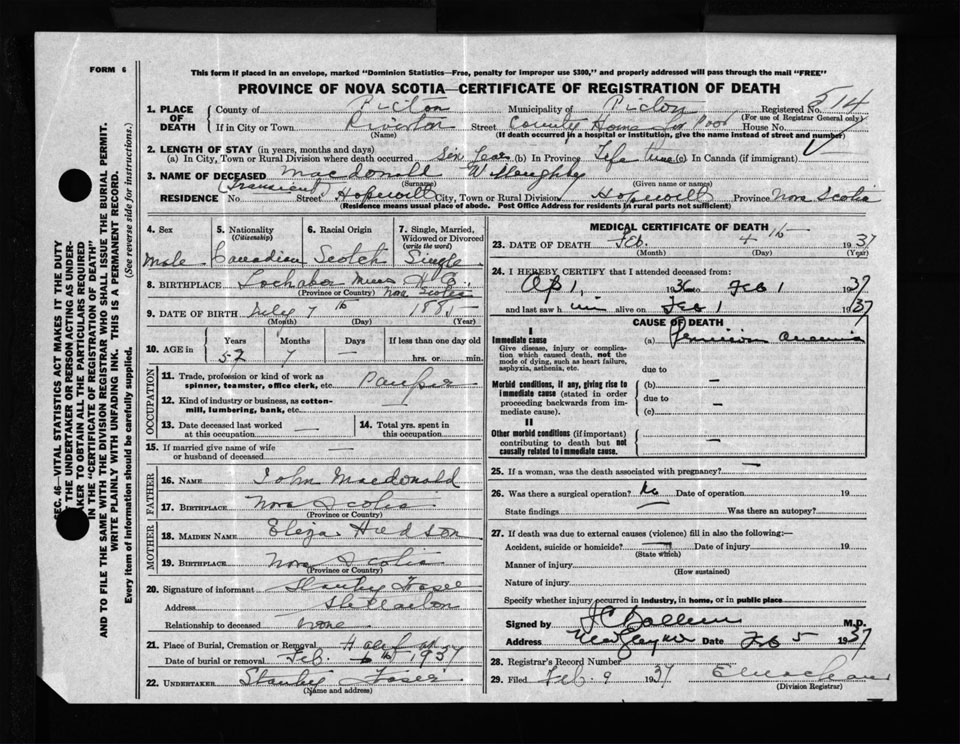 FORM 6
This form if placed in an envelope, marked "Dominion Statistics—Free, penalty for improper use $300," and properly addressed will pass through the mail "FREE"
PROVINCE OF NOVA SCOTIA—CERTIFICATE OF REGISTRATION OF DEATH
1. PLACE OF DEATH County of Pictou Municipality of Pictou Registered No. 514
(For use of Registrar General only)
If in City or Town Riverton Street County Home House No.
(Name) (If death occurred in a hospital or institution, give the name instead of street and number)
2. LENGTH OF STAY (in years, months and days)
(a) In City, Town or Rural Division where death occurred Six (b) In Province Life time (c) In Canada (if immigrant)
3. NAME OF DECEASED Macdonald Willoughby
(Surname) (Given name or names)
(Transient)
RESIDENCE No. Street Hopewell City, Town or Rural Division Hopewell Province Nova Scotia
(Residence means usual place of abode. Post Office Address for residents in rural parts not sufficient)
4. Sex 5. Nationality 6. Racial Origin 7. Single, Married, Widowed or Divorced
(Citizenship) (write the word)
Male Canadian Scotch Single
8. BIRTHPLACE Lochaber
(Province or Country) Nova Scotia
9. DATE OF BIRTH July 7th
(Month) (Day) (Year)
10. AGE in Years Months Days If less than one day old
52 7 — hrs. or min.
OCCUPATION
11. Trade, profession or kind of work as spinner, teamster, office clerk, etc. Pauper
12. Kind of industry or business, as cotton-mill, lumbering, bank, etc.
13. Date deceased last worked at this occupation — 14. Total yrs. spent in this occupation
15. If married give name of wife or husband of deceased —
FATHER
16. NAME John Macdonald
17. BIRTHPLACE Nova Scotia
(Province or Country)
MOTHER
18. MAIDEN NAME Eliza Hudson
19. BIRTHPLACE Nova Scotia
(Province or Country)
20. Signature of informant Stanley Fraser
Address Stellarton
Relationship to deceased none
21. Place of Burial, Cremation or Removal
Date of burial or removal Feb. 1937
22. UNDERTAKER Stanley Fraser
(Name and address)
MEDICAL CERTIFICATE OF DEATH
23. DATE OF DEATH Feb. 4th 1937
(Month) (Day) (Year)
24. I HEREBY CERTIFY that I attended deceased from:
Ap 1, 1936 to Feb 1 1937
and last saw him alive on Feb 1 1937
CAUSE OF DEATH
I
Immediate cause (a) Pernicious anaemia
Give disease, injury or complication which caused death, not the mode of dying, such as heart failure, asphyxia, asthenia, etc.
due to
Morbid conditions, if any, giving rise to immediate cause (stated in order proceeding backwards from immediate cause).
(b) —
due to
(c) —
II
Other morbid conditions (if important) contributing to death but not causally related to immediate cause. —
25. If a woman, was the death associated with pregnancy? —
26. Was there a surgical operation? No Date of operation 19
State findings Was there an autopsy?
27. If death was due to external causes (violence) fill in also the following:—
Accident, suicide or homicide? — Date of injury 19
(State which)
Manner of injury
(How sustained)
Nature of injury
Specify whether injury occurred in industry, in home, or in public place
Signed by M.D.
Address New Glasgow Date Feb 5 1937
28. Registrar's Record Number
29. Filed Feb. 9 1937
(Division Registrar)
SEC. 46—VITAL STATISTICS ACT MAKES IT THE DUTY
OF THE UNDERTAKER OR PERSON ACTING AS UNDERTAKER TO OBTAIN ALL THE PARTICULARS REQUIRED
IN THE "CERTIFICATE OF REGISTRATION OF DEATH"
AND TO FILE THE SAME WITH THE DIVISION REGISTRAR WHO SHALL ISSUE THE BURIAL PERMIT.
WRITE PLAINLY WITH UNFADING INK. THIS IS A PERMANENT RECORD.
Every item of information should be carefully supplied. (See reverse side for instructions.)